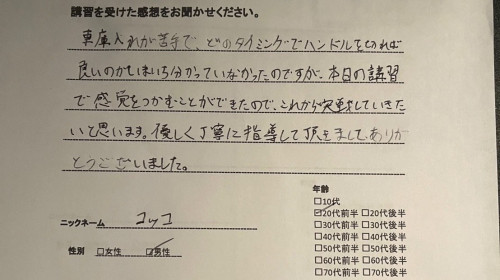 講習を受けた感想をお聞かせください。
車庫入れが苦手で、どのタイミングでハンドルをきれば
良いのかもいまいち分かっていなかったのですが、本日の講習
で感覚をつかむことができたので、これから実転していきた
いと思います。優しく丁寧に指導して頂きまして、ありが
とうございました。
ニックネーム コッコ
性別 □女性 ☑男性
年齢
□10代
☑20代前半 □20代後半
□30代前半 □30代後半
□40代前半 □40代後半
□50代前半 □50代後半
□60代前半 □60代後半
□70代前半 □70代後半